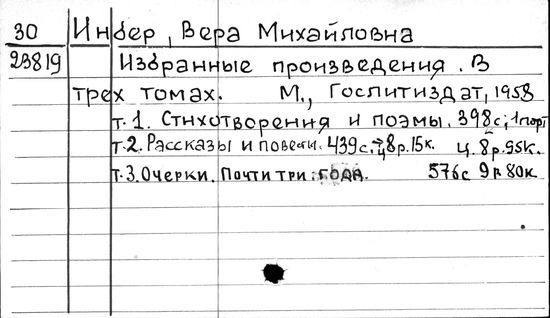 30 Инбер, Вера Михайловна
23819 Избранные произведения. В
трех томах. М., Гослитиздат, 1958
т.1. Стихотворения и поэмы. 398с; 1порт
т.2. Рассказы и повести. 439с. ц8р.15к. ц.8р.95к.
т.3. Очерки. Почти три года. 576с 9р.80к.